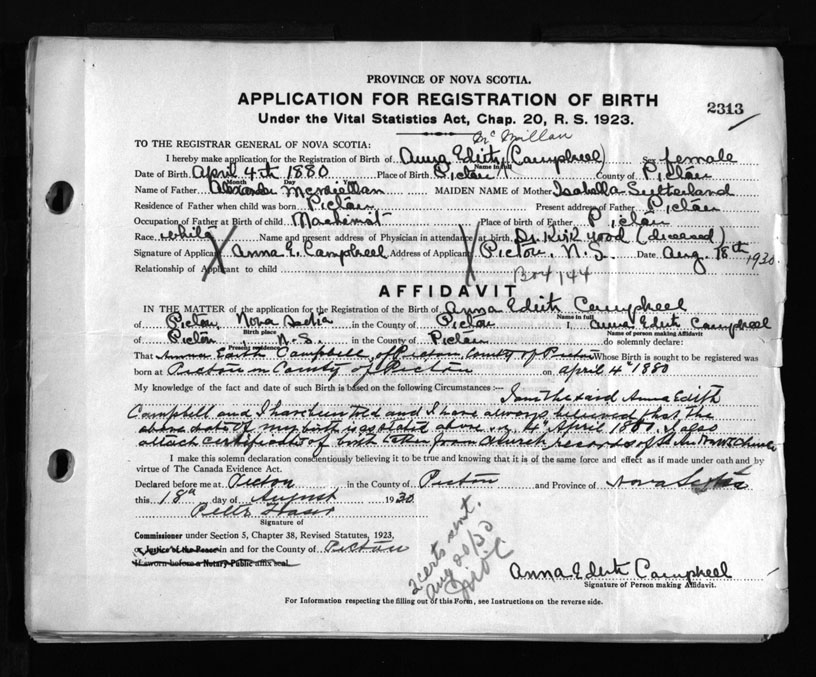 PROVINCE OF NOVA SCOTIA.
APPLICATION FOR REGISTRATION OF BIRTH
2313
Under the Vital Statistics Act, Chap. 20, R. S. 1923.
McMillan
TO THE REGISTRAR GENERAL OF NOVA SCOTIA:
I hereby make application for the Registration of Birth of Anna Edith (Campbell) Sex female
Name in full
Date of Birth April 4th 1880 Place of Birth Pictou County of Pictou
Month Day Yr.
Name of Father Alexander McMillan MAIDEN NAME of Mother Isabella Sutherland
Residence of Father when child was born Pictou Present address of Father Pictou
Occupation of Father at Birth of child Machinist Place of Birth of Father Pictou
Race white Name and present address of Physician in attendance at birth Dr. Kirkwood (deceased)
Signature of Applicant Anna E. Campbell Address of Applicant Pictou, N. S. Date Aug. 18th 1930
Relationship of Applicant to child Box 144
AFFIDAVIT
IN THE MATTER of the application for the Registration of the Birth of Anna Edith Campbell
Name in full
of Pictou, Nova Scotia in the County of Pictou I, Anna Edith Campbell
Birth place Name of person making Affidavit
of Pictou, N.S. in the County of Pictou do solemnly declare:
Present residence
That Anna Edith Campbell, of Pictou, County of Pictou Whose Birth is sought to be registered was
born at Pictou in County of Pictou on April 4th 1880
My knowledge of the fact and date of such Birth is based on the following Circumstances:— I am the said Anna Edith
Campbell and I have been told and I have always believed that the
above date of my birth is as stated above viz 4th April 1880. I also
attach certificate of birth taken from Church records of St. Andrew's Church
I make this solemn declaration conscientiously believing it to be true and knowing that it is of the same force and effect as if made under oath and by
virtue of The Canada Evidence Act.
Declared before me at Pictou in the County of Pictou and Province of Nova Scotia
this 18th day of August 1930
Signature of
Commissioner under Section 5, Chapter 38, Revised Statutes, 1923,
or Justice of the Peace in and for the County of Pictou
If sworn before a Notary Public affix seal.
2 certs sent.
Aug 20/30
Anna Edith Campbell
Signature of Person making Affidavit.
For Information respecting the filling out of this Form, see Instructions on the reverse side.